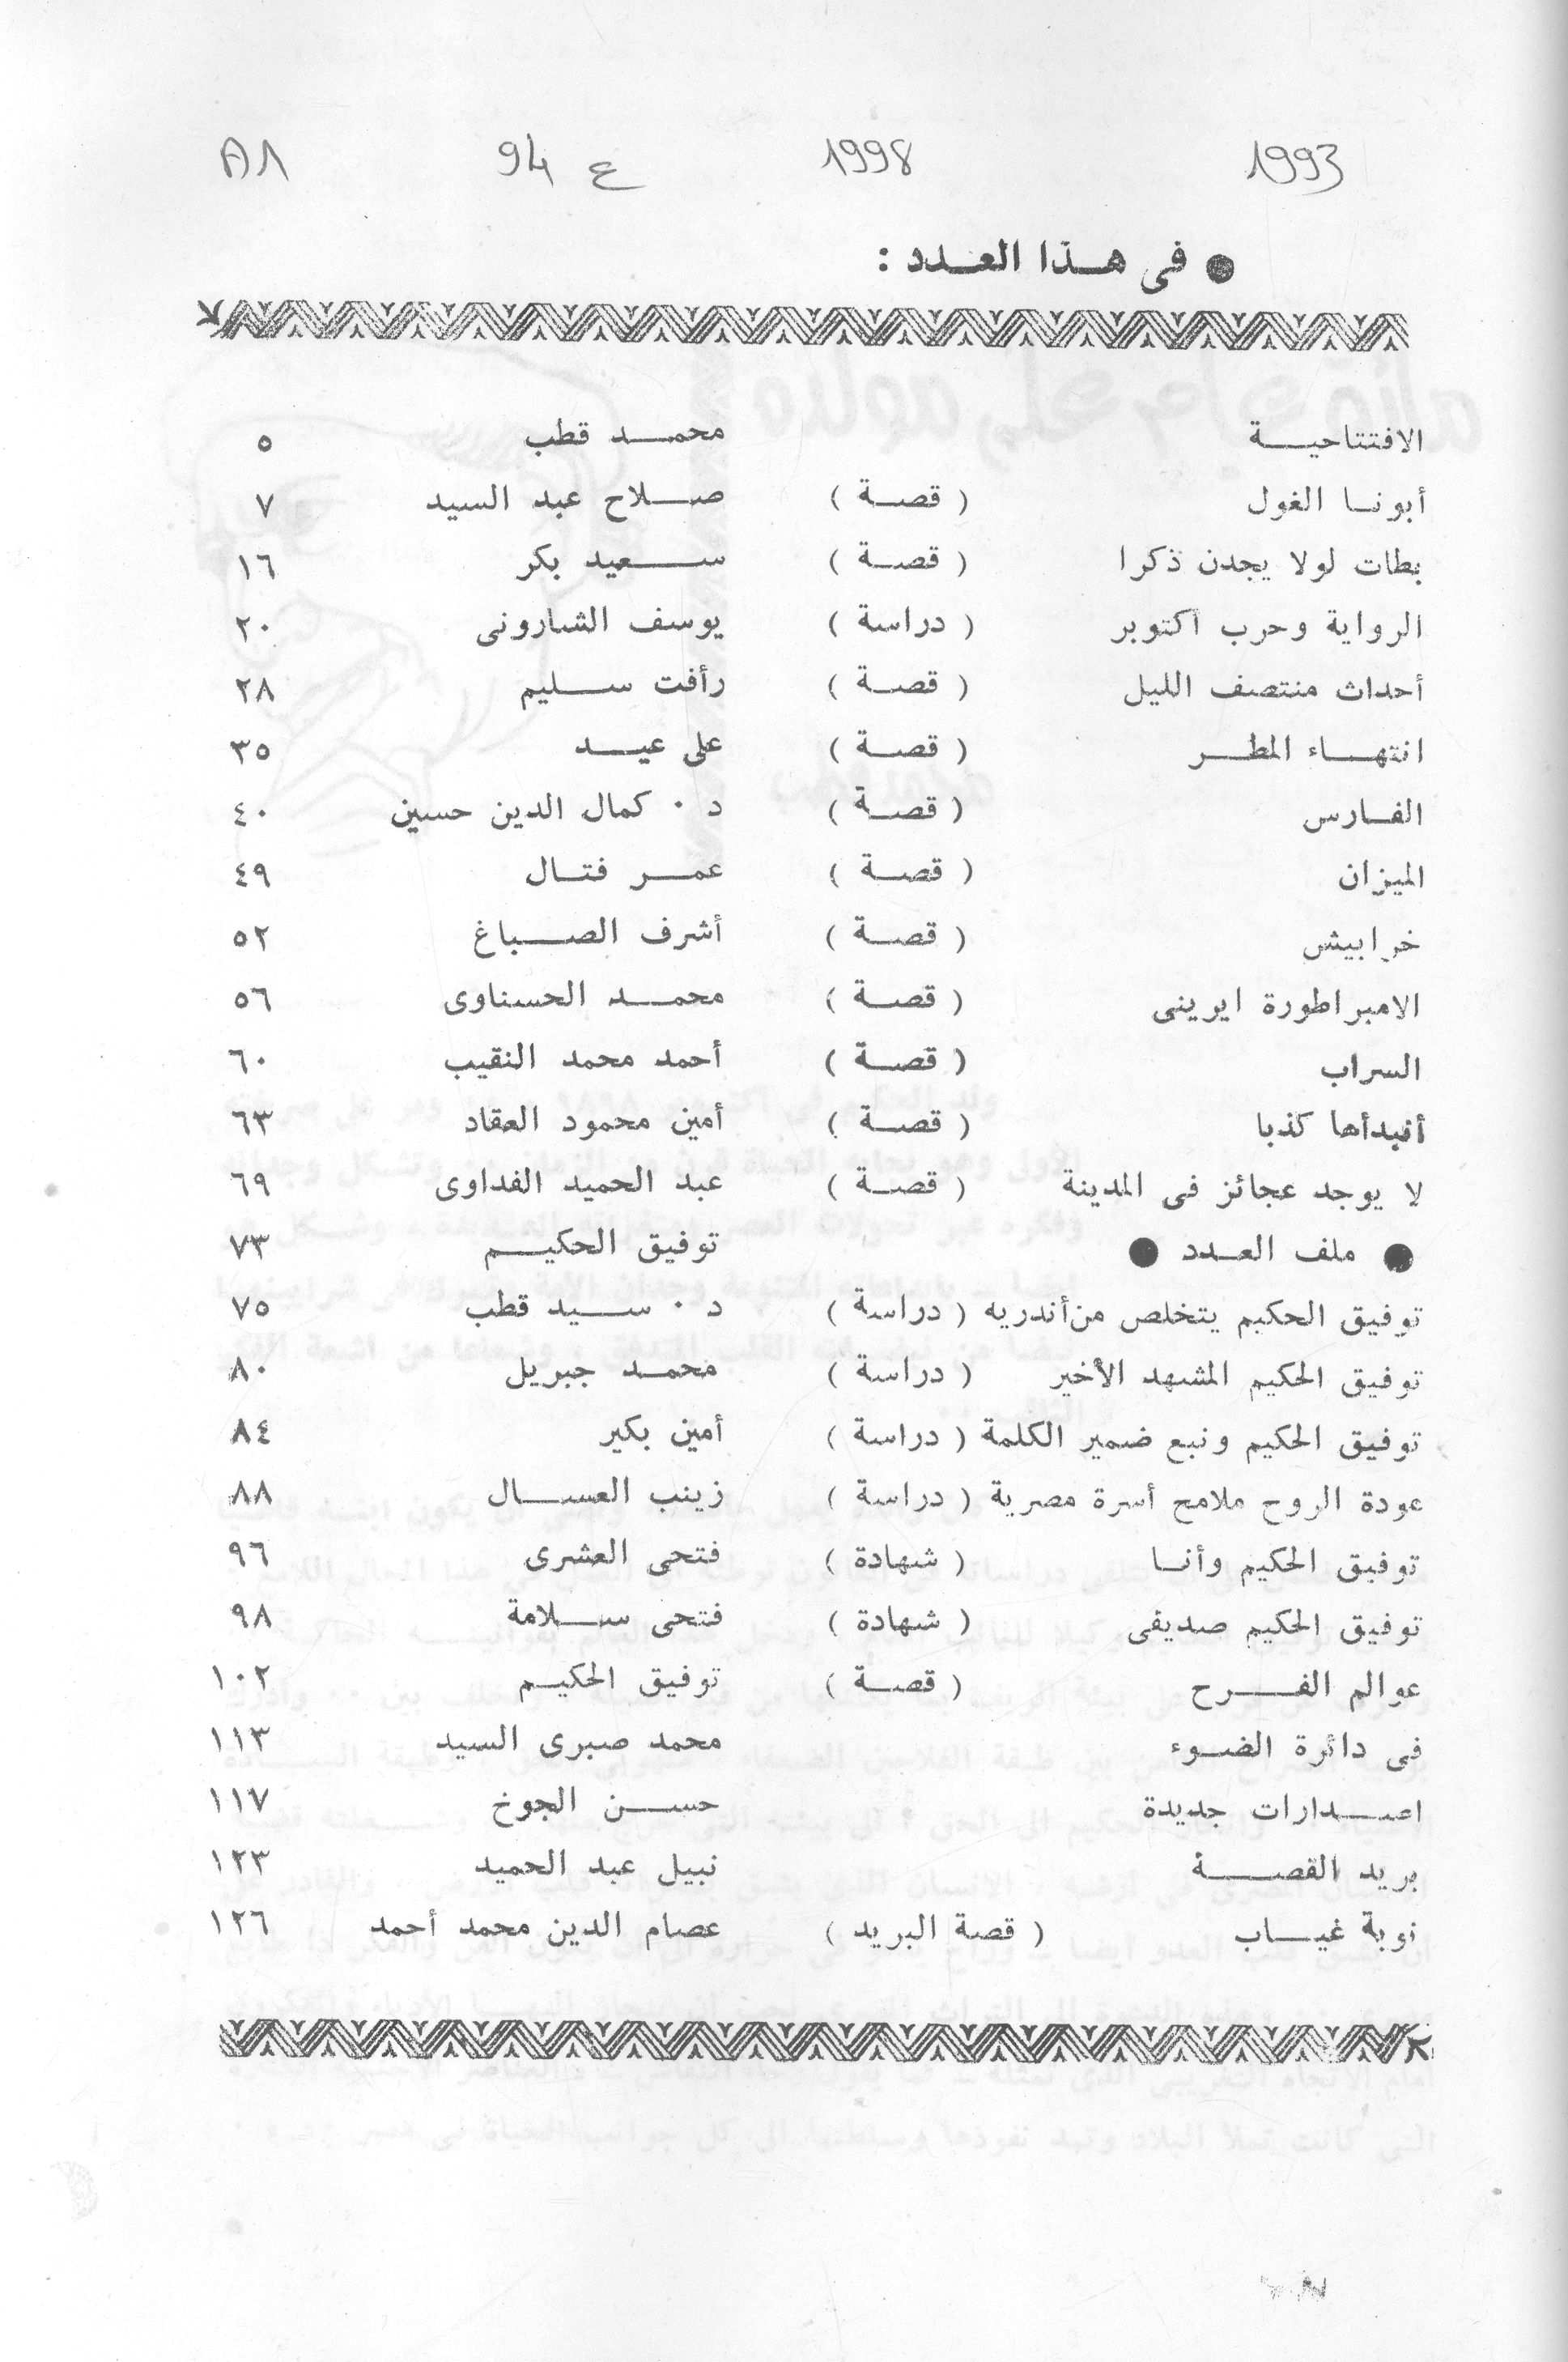 1993 1998 ع 94 ٨٨
● فى هذا العدد :
الافتتاحية محمد قطب ٥
أبونا الغول ( قصة ) صلاح عبد السيد ٧
بطات لولا يجدن ذكرا ( قصة ) سعيد بكر ١٦
الرواية وحرب اكتوبر ( دراسة ) يوسف الشارونى ٢٠
أحداث منتصف الليل ( قصة ) رأفت سليم ٢٨
انتهاء المطر ( قصة ) على عيد ٣٥
الفارس ( قصة ) د ٠ كمال الدين حسين ٤٠
الميزان ( قصة ) عمر فتال ٤٩
خرابيش ( قصة ) أشرف الصباغ ٥٢
الامبراطورة ايرينى ( قصة ) محمد الحسناوى ٥٦
السراب ( قصة ) أحمد محمد النقيب ٦٠
كذبا ( قصة ) أمين محمود العقاد ٦٣
لا يوجد عجائز فى المدينة ( قصة ) عبد الحميد الفداوى ٦٩
● ملف العدد ● توفيق الحكيم ٧٣
توفيق الحكيم يتخلص من أندريه ( دراسة ) د ٠ سيد قطب ٧٥
توفيق الحكيم المشهد الأخير ( دراسة ) محمد جبريل ٨٠
توفيق الحكيم ونبع ضمير الكلمة ( دراسة ) أمين بكير ٨٤
عودة الروح ملامح أسرة مصرية ( دراسة ) زينب العسال ٨٨
توفيق الحكيم وأنا ( شهادة ) فتحى العشرى ٩٦
توفيق الحكيم صديقى ( شهادة ) فتحى سلامة ٩٨
عوالم الفرح ( قصة ) توفيق الحكيم ١٠٢
فى دائرة الضوء محمد صبرى السيد ١١٣
اصدارات جديدة حسن الجوخ ١١٧
بريد القصة نبيل عبد الحميد ١٢٣
نوبة غياب ( قصة البريد ) عصام الدين محمد أحمد ١٢٦